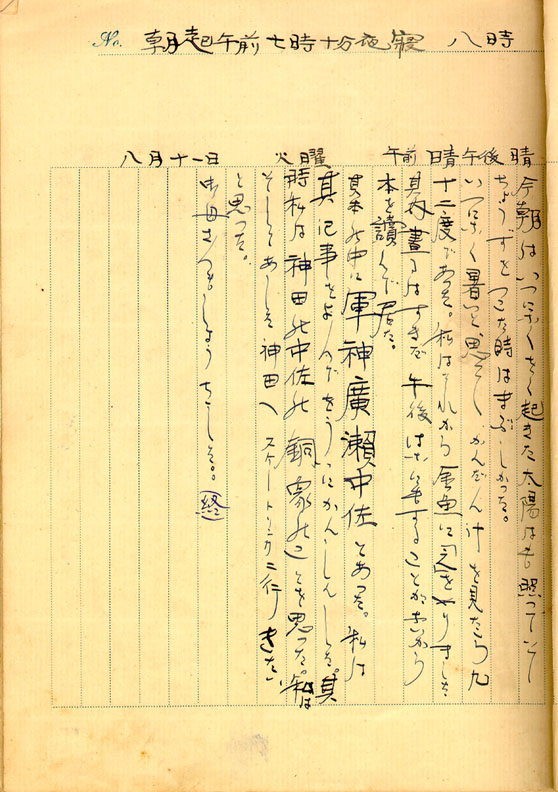 No. 朝起午前七時十分夜寝 八時
八月十一日 火曜 午前 晴 午後 晴
今朝はいつになく早く起きた太陽はも 照っていて
ちょうずをつかった時はまぶしかった。
いつになく暑いと思って、かんだん計を見たら九
十二度であった。私はそれから金魚に をやりました
其の はすきだ午後は にもすることがないから
本を讀んで居た。
其本の中に軍神廣瀬中佐とあった。私は
其記事をよんで うにかんしんした。其
時私は神田の中佐の銅象のことを思った。私は
そしてあした神田へスケートリンクニ行きたい
と思った。
しようちした。(終)